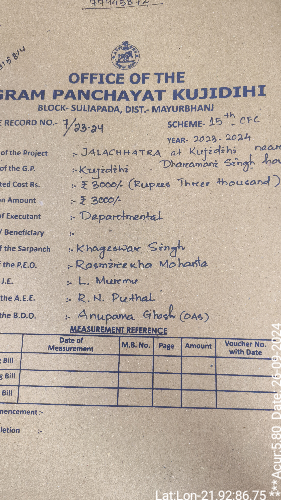 OFFICE OF THE
GRAM PANCHAYAT KUJIDIHI
BLOCK- SULIAPADA, DIST.- MAYURBHANJ
E RECORD NO.- 7/23-24
SCHEME- 15th CFC
YEAR- 2023-2024
of the Project :- JALACHHATRA at Kujidihi near
Dharamani Singh hou
of the G.P. :- Kujidihi
ted Cost Rs. :- ₹ 3000/- (Rupees Three thousand)
n Amount :- ₹ 3000/-
of Executant :- Departmental
/ Beneficiary :-
f the Sarpanch :- Khageswar Singh
f the P.E.O. :- Rasmirekha Mohanta
J.E. :- L. Murmu
the A.E.E. :- R. N. Puthal
the B.D.O. :- Anupama Ghosh (OAS)
MEASUREMENT REFERENCE
Date of Measurement M.B. No. Page Amount Voucher No. with Date
Bill
g Bill
Bill
mencement :-
letion :-
Lat:Lon-21.92:86.75 ***Acur:5.80 Date:-26-09-2024